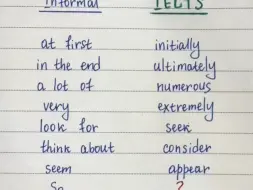 Informal IELTS
at first initially
in the end ultimately
a lot of numerous
very extremely
look for seek
think about consider
seem appear
So ?